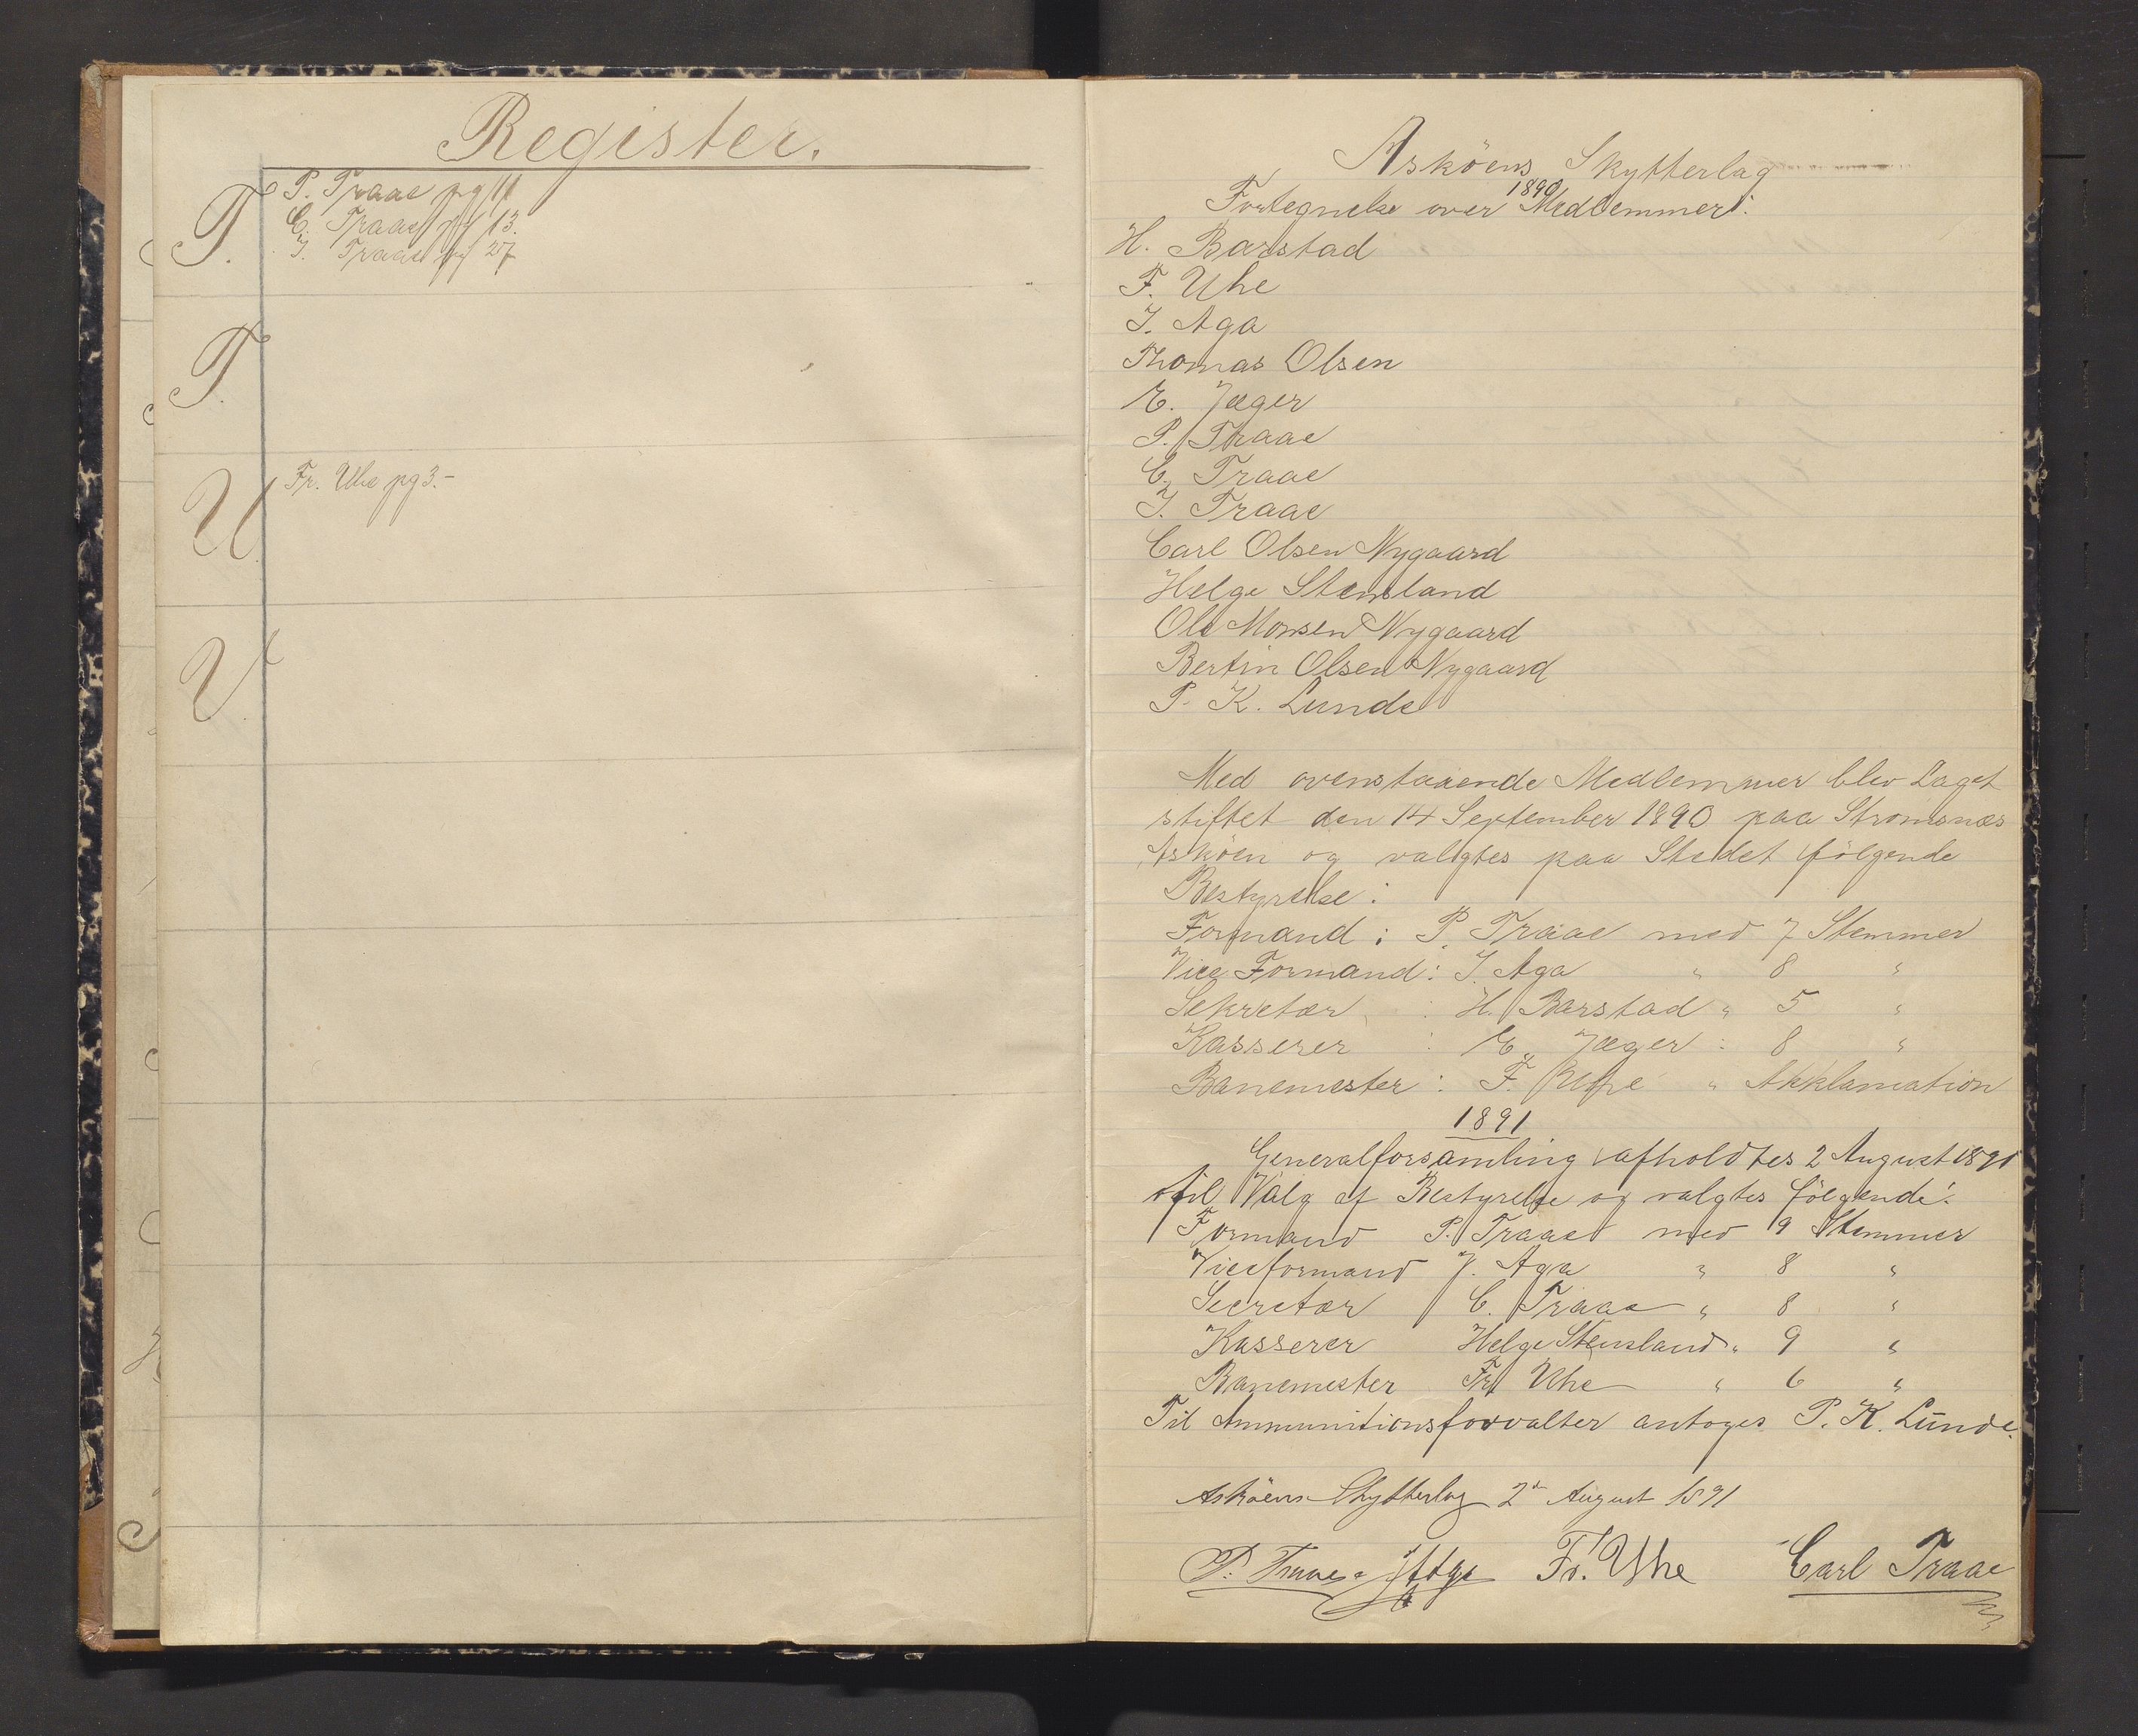 Register.
T.
P. Traae pg 11
C. Traae pg 13.
J. Traae pg 27
T.
U
Fr. Uhe pg 3.-
V
Asköens Skytterlag
1890
Fortegnelse over Medlemmer:
H. Barstad
F. Uhe
J. Aga
Thomas Olsen
E. Jæger
P. Traae
C. Traae
J. Traae
Carl Olsen Nygaard
Helge Stensland
Ole Monsen Nygaard
Bertin Olsen Nygaard
P. K. Lunde
Med ovenstaaende Medlemmer blev Laget
stiftet den 14 September 1890 paa Strømsnæs
Asköen og valgtes paa Stedet følgende
Bestyrelse:
Formand: P. Traae med 7 Stemmer
Vice Formand: J. Aga " 8 "
Sekretær : H. Barstad " 5 "
Kasserer : E. Jæger : 8 "
Banemester: F. Uhe " Akklamation
1891
Generalforsamling afholdtes 2 August 1891
til Valg af Bestyrelse og valgtes følgende:
Formand P. Traae med 9 Stemmer
Viceformand J. Aga " 8 "
Secretær C. Traae " 8 "
Kasserer Helge Stensland " 9 "
Banemester Fr. Uhe " 6 "
Til Ammunitionsforvalter antoges P. K. Lunde.
Asköens Skytterlag 2 August 1891
P. Traae J Aga Fr. Uhe Carl Traae